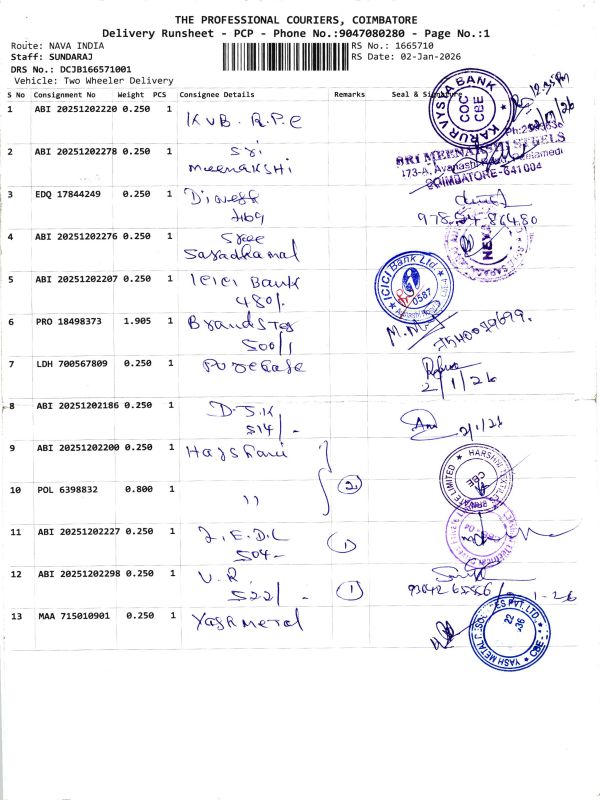 THE PROFESSIONAL COURIERS, COIMBATORE
Delivery Runsheet - PCP - Phone No.:9047080280 - Page No.:1
Route: NAVA INDIA RS No.: 1665710
Staff: SUNDARAJ RS Date: 02-Jan-2026
DRS No.: DCJB166571001
Vehicle: Two Wheeler Delivery
S No Consignment No Weight PCS Consignee Details Remarks Seal & Signature
1 ABI 20251202220 0.250 1 KVB. R.P.C
KARUR VYSYA BANK
COC
CBE
2 ABI 20251202278 0.250 1 Sri
Meenakshi
SRI MEENA
173-A, Avanashi
COIMBATORE-641004
3 EDQ 17844249 0.250 1 Dinesh
4 ABI 20251202276 0.250 1 Sree
Saradhamal
5 ABI 20251202207 0.250 1 ICICI Bank
480/.
ICICI Bank Ltd
0587
6 PRO 18498373 1.905 1 Brandster
500/1
7 LDH 700567809 0.250 1
2/1/26
8 ABI 20251202186 0.250 1 D.S.K
514/-
2/1/26
9 ABI 20251202200 0.250 1 Harshini
HARSHINI
PRIVATE LIMITED
CBE
10 POL 6398832 0.800 1 ,, 2
11 ABI 20251202227 0.250 1 I.E.D.C
504- 1
12 ABI 20251202298 0.250 1 V.R.
522/- 1
13 MAA 715010901 0.250 1 Yash Metal
YASH METAL
PVT. LTD.
CBE
22
36